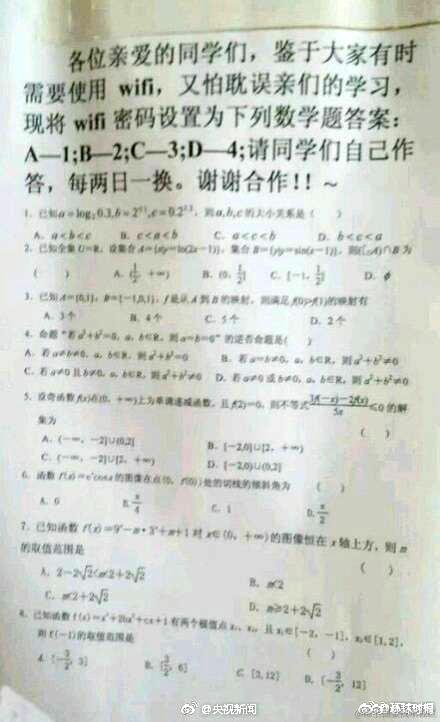 各位亲爱的同学们，鉴于大家有时
需要使用 wifi，又怕耽误亲们的学习，
现将 wifi 密码设置为下列数学题答案：
A—1;B—2;C—3;D—4;请同学们自己作
答，每两日一换。谢谢合作！！～
1. 已知a=log₂0.3,b=2^0.1,c=0.2^1.3，则a,b,c的大小关系是（ ）
A. a<b<c B. c<a<b C. a<c<b D. b<c<a
2. 已知全集U=R，设集合A={x|y=ln(2x-1)}，集合B={y|y=sin(x-1)}，则(∁ᵤA)∩B为
（ ） A. (1/2, +∞) B. (0, 1/2] C. [-1, 1/2] D. ϕ
3. 已知A={0,1}，B={-1,0,1}，f是从A到B的映射，则满足f(0)>f(1)的映射有
A. 3个 B. 4个 C. 5个 D. 2个
4. 命题“若a²+b²=0，a，b∈R，则a=b=0”的逆否命题是( )
A. 若a≠b≠0，a，b∈R，则a²+b²=0 B. 若a=b≠0，a，b∈R，则a²+b²≠0
C. 若a≠0且b≠0，a，b∈R，则a²+b²≠0 D. 若a≠0或b≠0，a，b∈R，则a²+b²≠0
5. 设奇函数f(x)在(0，+∞)上为单调递减函数，且f(2)=0，则不等式 3f(-x)-2f(x)/5x ≤0 的解
集为 （ ）
A. (-∞，-2]∪(0,2] B. [-2,0)∪[2，+∞)
C. (-∞，-2]∪[2，+∞) D. [-2,0)∪(0,2]
6. 函数 f(x)=eˣcosx的图像在点(0，f(0))处的切线的倾斜角为 （ ）
A. 0 B. π/4 C. 1 D. π/2
7. 已知函数 f(x)=9ˣ-m·3ˣ+m+1对 x∈(0，+∞)的图像恒在x轴上方，则m
的取值范围是 （ ）
A. 2-2√2<m<2+2√2 B. m<2
C. m<2+2√2 D. m≥2+2√2
8. 已知函数f(x)=x³+2bx²+cx+1有两个极值点x₁、x₂，且x₁∈[-2，-1]，x₂∈[1,2]，
则f(-1)的取值范围是 （ ）
A. [-3/2, 3] B. [3/2, 6] C. [3,12] D. [-3/2, 12]
@央视新闻
@环球时报